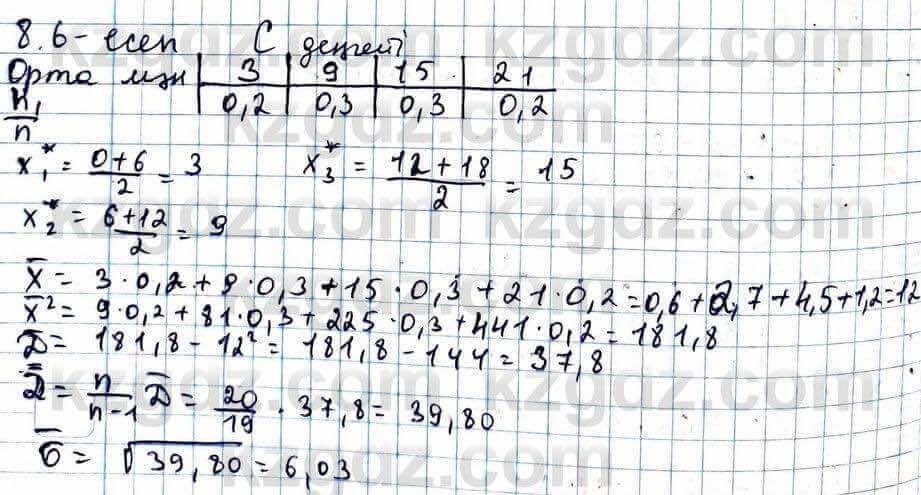 8.6-есеп С деңгейі
Орта мән 3 9 15 21
n₁/n 0,2 0,3 0,3 0,2
x₁* = (0+6)/2 = 3 x₃* = (12+18)/2 = 15
x₂* = (6+12)/2 = 9
x̄ = 3·0,2+9·0,3+15·0,3+21·0,2=0,6+2,7+4,5+1,2=12
x̄² = 9·0,2+81·0,3+225·0,3+441·0,2=181,8
D̄ = 181,8-12² = 181,8-144=37,8
D̄ = n/(n-1) D̄ = 20/19 · 37,8= 39,80
σ̄ = √39,80 = 6,03
kzgdz.com